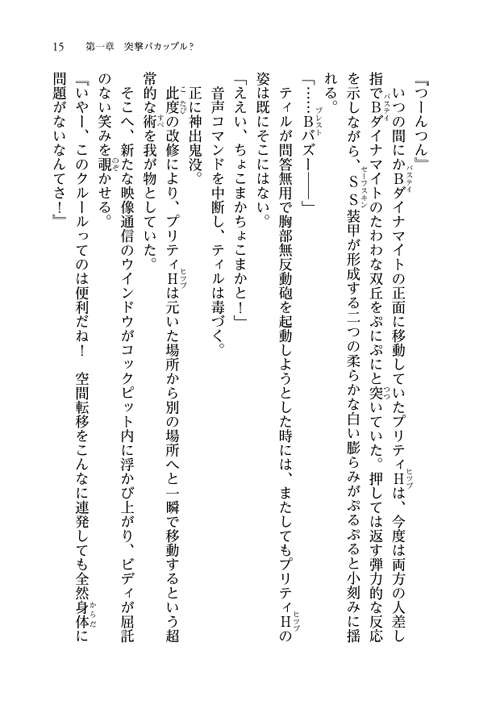 15　第一章　突撃バカップル?
『つーんつん』
　いつの間にかBダイナマイトの正面に移動していたプリティHは、今度は両方の人差し
指でBダイナマイトのたわわな双丘をぷにぷにと突いていた。押しては返す弾力的な反応
を示しながら、SS装甲が形成する二つの柔らかな白い膨らみがぷるぷると小刻みに揺
れる。
「……Bバズー――」
　ティルが問答無用で胸部無反動砲を起動しようとした時には、またしてもプリティHの
姿は既にそこにはない。
「ええい、ちょこまかちょこまかと!」
　音声コマンドを中断し、ティルは毒づく。
　正に神出鬼没。
　此度の改修により、プリティHは元いた場所から別の場所へと一瞬で移動するという超
常的な術を我が物としていた。
　そこへ、新たな映像通信のウインドウがコックピット内に浮かび上がり、ビディが屈託
のない笑みを覗かせる。
『いやー、このクルールってのは便利だね!　空間転移をこんなに連発しても全然身体に
問題がないなんてさ!』